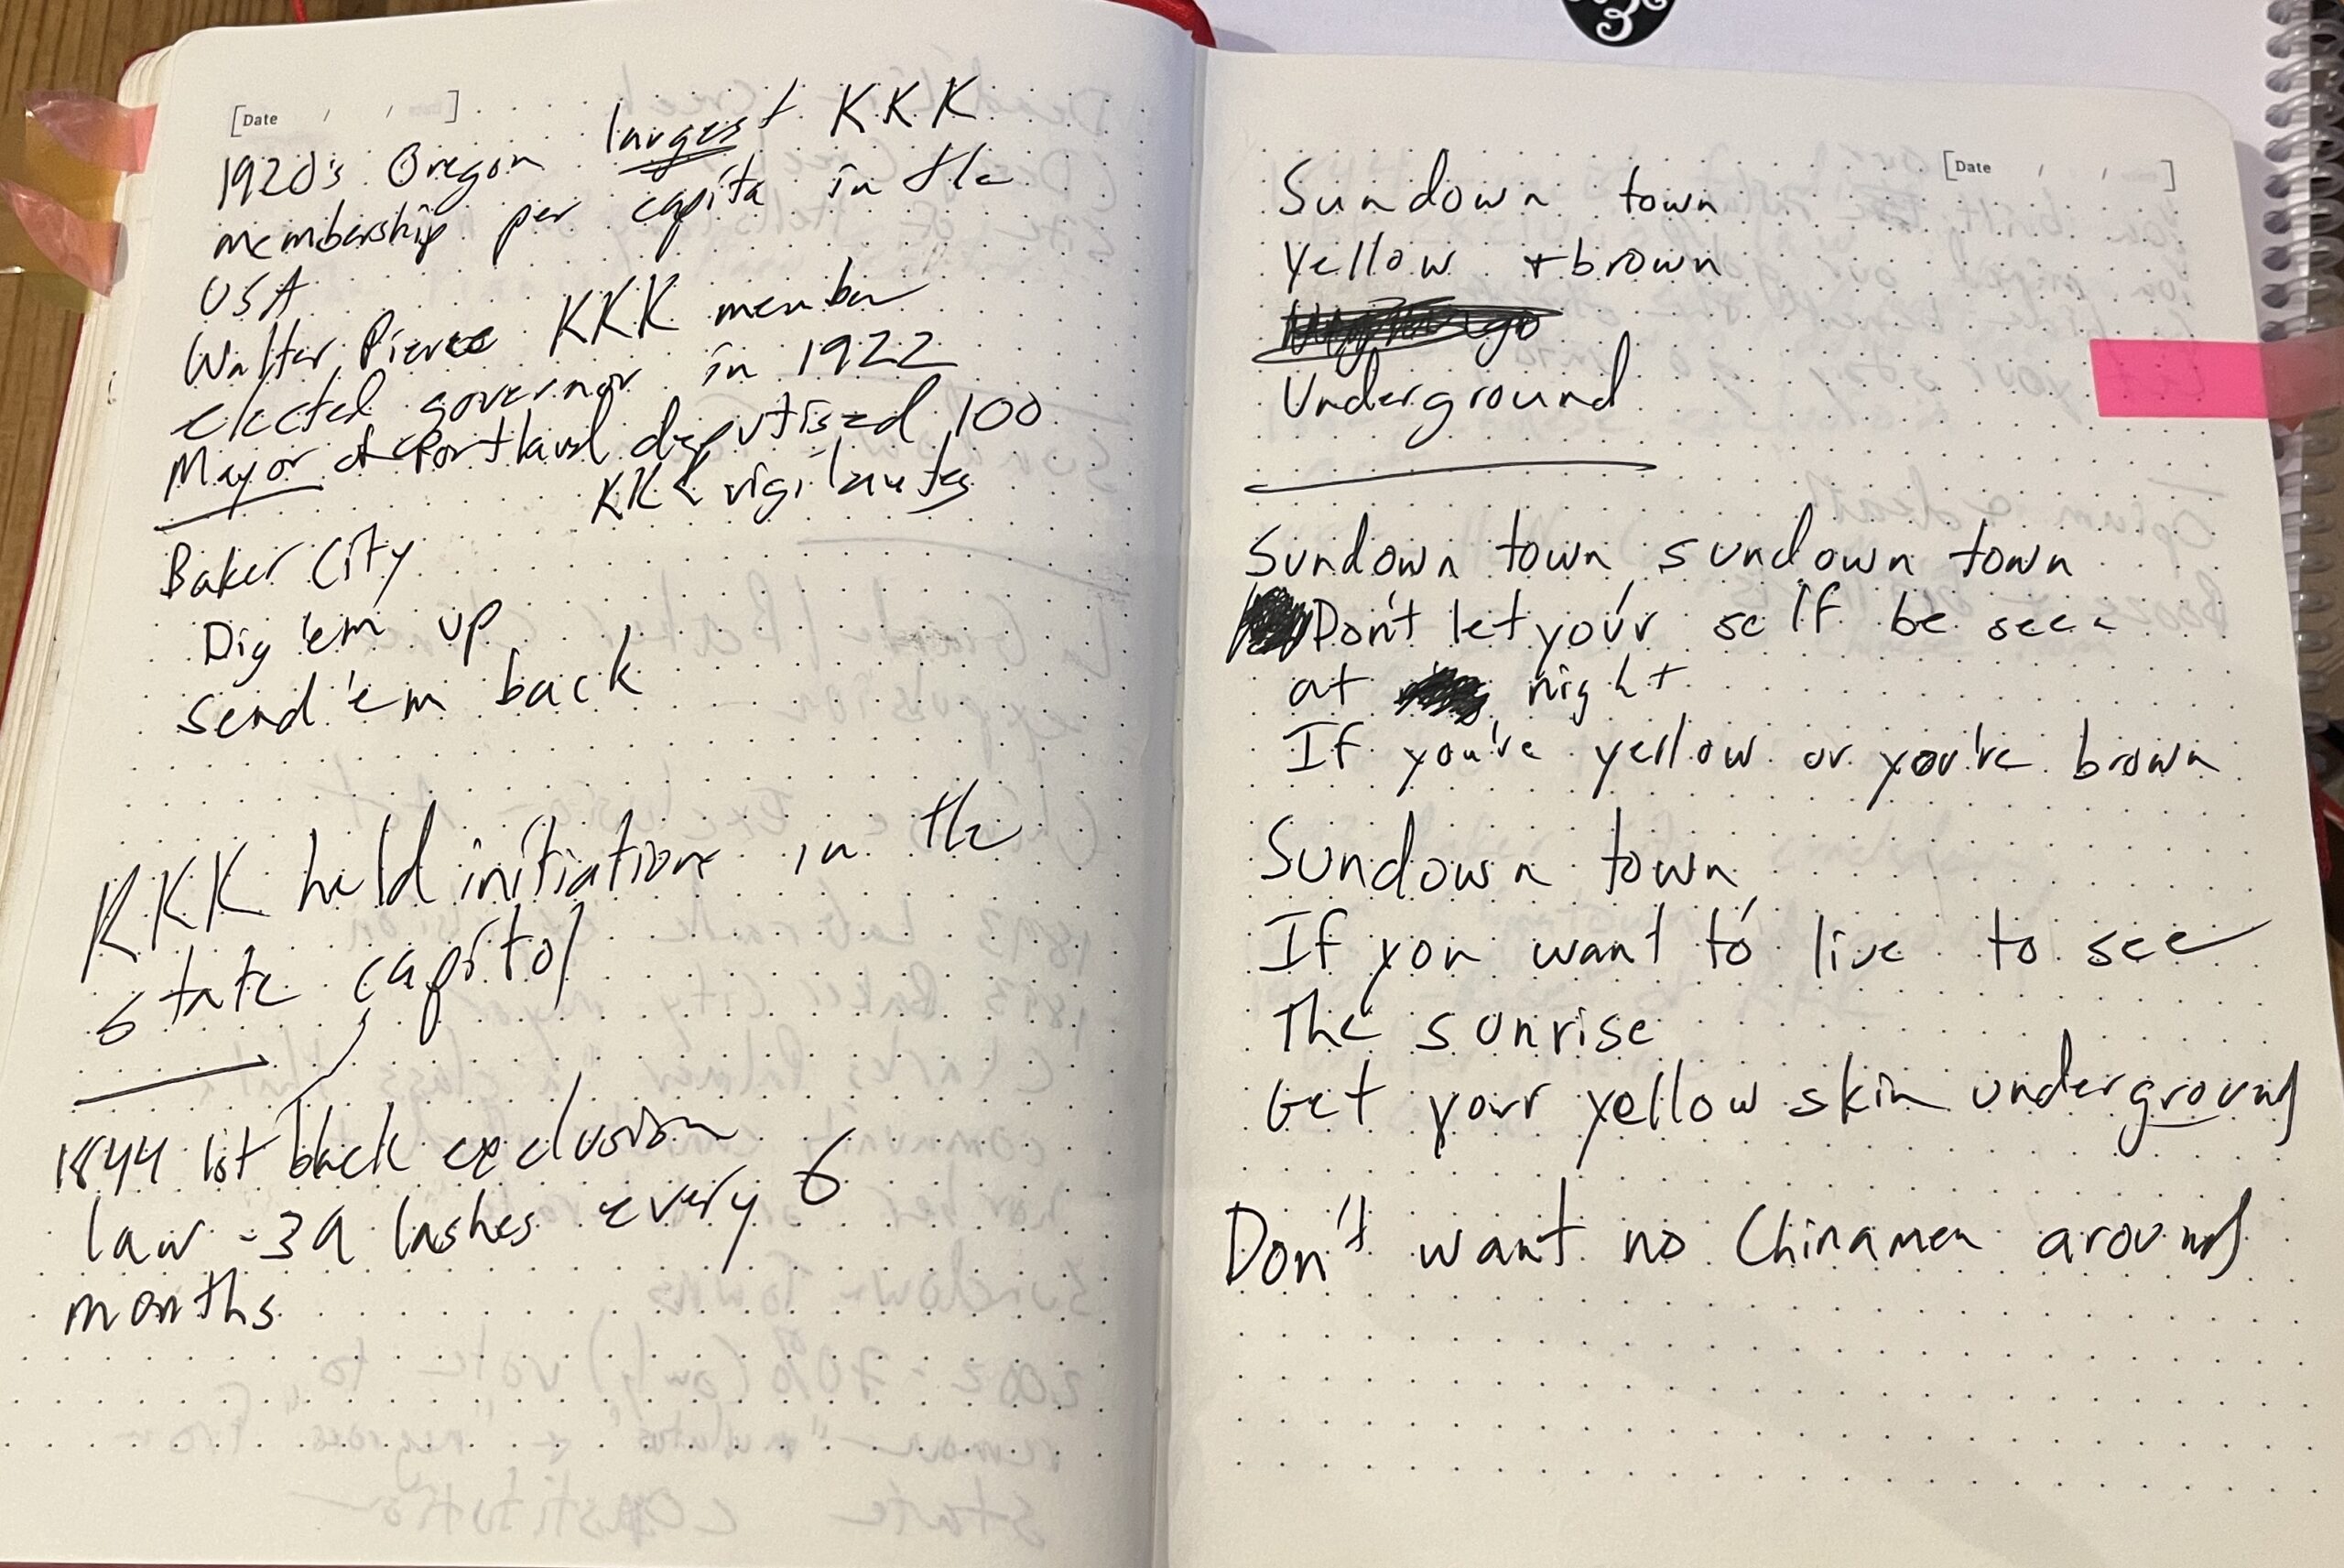 [Date / / ]
1920's Oregon largest KKK
membership per capita in the
USA
Walter Pierce KKK member
elected governor in 1922
Mayor of Portland deputised 100
KKK vigilantes
Baker City
Dig 'em up
send 'em back
KKK held initiation in the
state capitol
1844 1st black exclusion
law - 39 lashes every 6
months
[Date / / ]
Sundown town
Yellow + brown
Underground
Sundown town, sundown town
Don't let your self be seen
at night
If you're yellow or you're brown
Sundown town,
If you want to live to see
the sunrise
Get your yellow skin underground
Don't want no Chinamen around